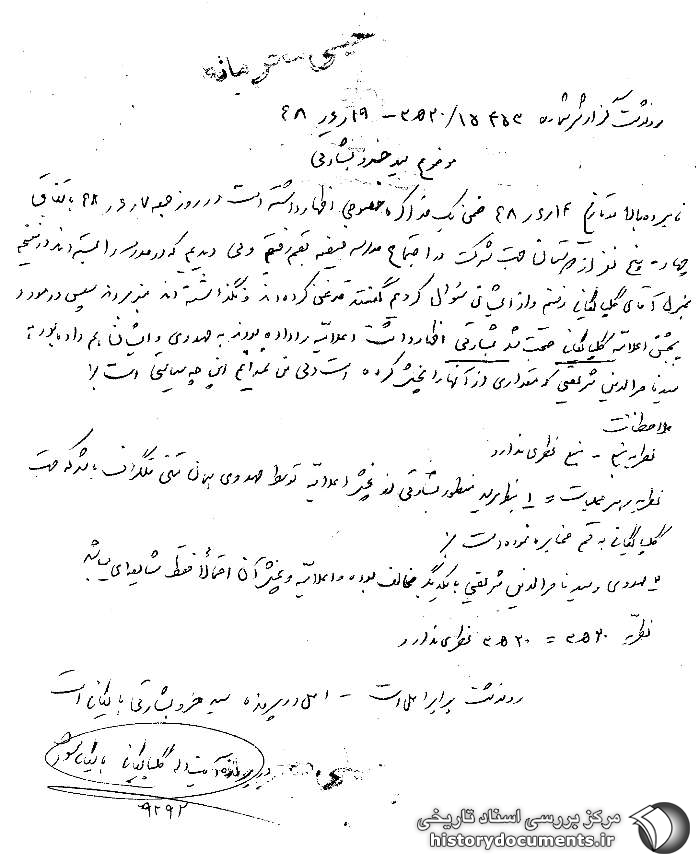 خیلی محرمانه
رونوشت گزارش شماره ۱۵۴۵۳/ ۳۵۲۰ - ۱۹/ ۶/ ۴۸
موضوع سید خسرو بشارتی
نامبرده بالا در تاریخ ۱۴/ ۶/ ۴۸ ضمن یک مذاکره خصوصی اظهار داشته است در روز جمعه ۷/ ۶/ ۴۸ باتفاق
چهار - پنج نفر از جهت شرکت در اجتماع مدرسه فیضیه بقم رفتیم ولی دیدیم که در مدرسه را بسته‌اند در نتیجه
بمنزل آقای گلپایگانی رفتیم و از ایشان سئوال کردیم گفتند قدغن کرده‌اند و نگذاشته‌اند سپس در مورد
پخش اعلامیه گلپایگانی صحبت شد بشارتی اظهار داشت اعلامیه را داده بودند به مهدوی و ایشان هم داده بود به
سید ناصرالدین که مقداری از آنها را پخش کرده است ولی من نمیدانم این چه سیاستی است
ملاحظات
نظریه منبع - منبع نظری ندارد
نظریه رهبر عملیات = ۱ بنظر میرسد منظور بشارتی از پخش اعلامیه توسط مهدوی همان متن تلگراف باشد که
گلپایگانی به قم مخابره نموده است
۲ مهدوی و سید ناصرالدین با یکدیگر مخالف بوده و اعلامیه و پخش آن احتمالاً فقط شایعه‌ای میباشد
نظریه ۳۵۲۰ = ۳۵۲۰ نظری ندارد
رونوشت برابر اصل است - اصل در پرونده سید خسرو بشارتی بایگانی است
در پرونده آیت اله گلپایگانی بایگانی شود
۹۲۹۲
مرکز بررسی اسناد تاریخی
historydocuments.ir